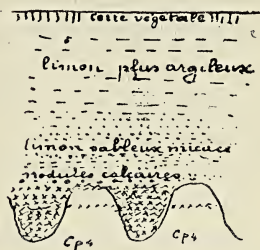 terre végétale
limon plus argileux
limon sableux micacé
nodules calcaires
Cp4
Cp4